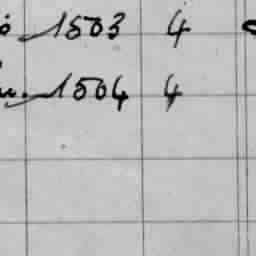 1503 4
1504 4